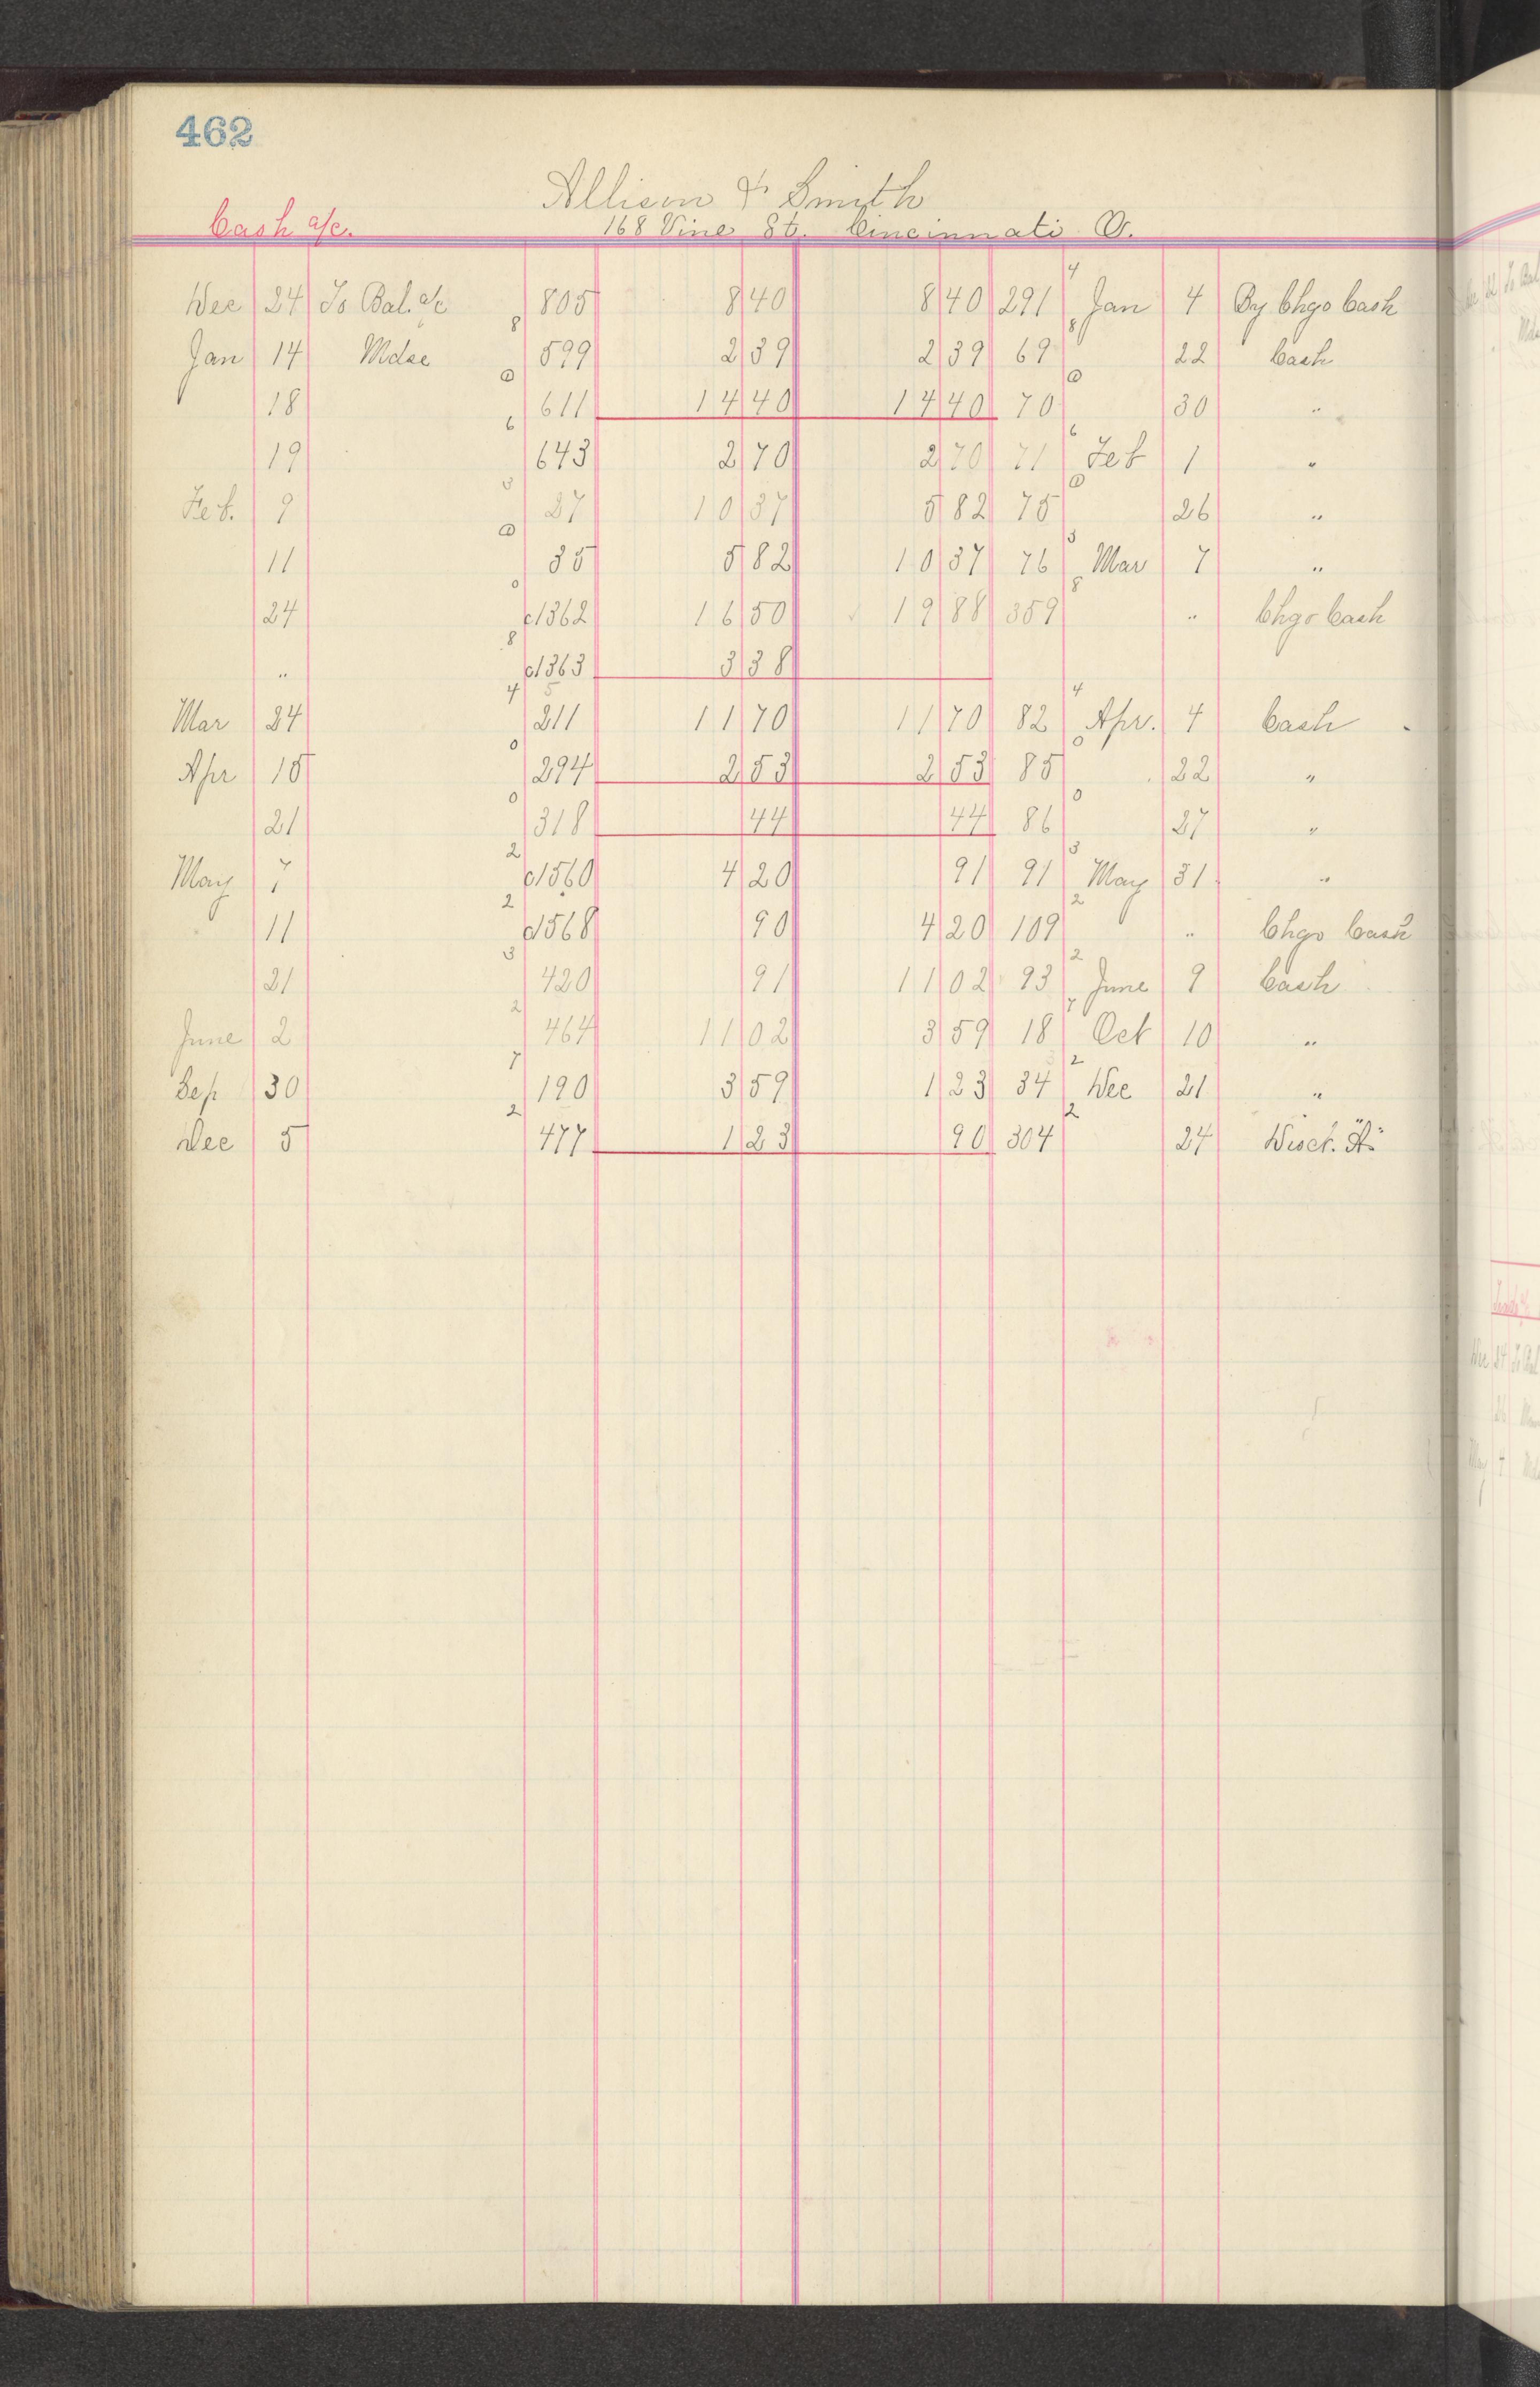 462
Allison & Smith
Cash a/c. 168 Vine St. Cincinnati O.
4
Dec 24 To Bal. a/c 805 8 40 8 40 291 Jan 4 By Chgo Cash
8 8
Jan 14 Mdse 599 2 39 2 39 69 22 Cash
18 611 14 40 14 40 70 30 "
6 6
19 643 2 70 2 70 71 Feb 1 "
3
Feb. 9 27 10 37 5 82 75 26 "
3
11 35 5 82 10 37 76 Mar 7 "
0 8
24 c1362 16 50 19 88 359 " Chgo Cash
8
" c1363 3 38
4 4
Mar 24 211 11 70 11 70 82 Apr. 4 Cash
0 0
Apr 15 294 2 53 2 53 85 22 "
0 0
21 318 44 44 86 27 "
2 3
May 7 c1560 4 20 91 91 May 31 "
2 2
11 c1568 90 4 20 109 " Chgo Cash
3 2
21 420 91 11 02 93 June 9 Cash
2 7
June 2 464 11 02 3 59 18 Oct 10 "
7 2
Sep 30 190 3 59 1 23 34 Dec 21 "
2 2
Dec 5 477 1 23 90 304 24 Disct.